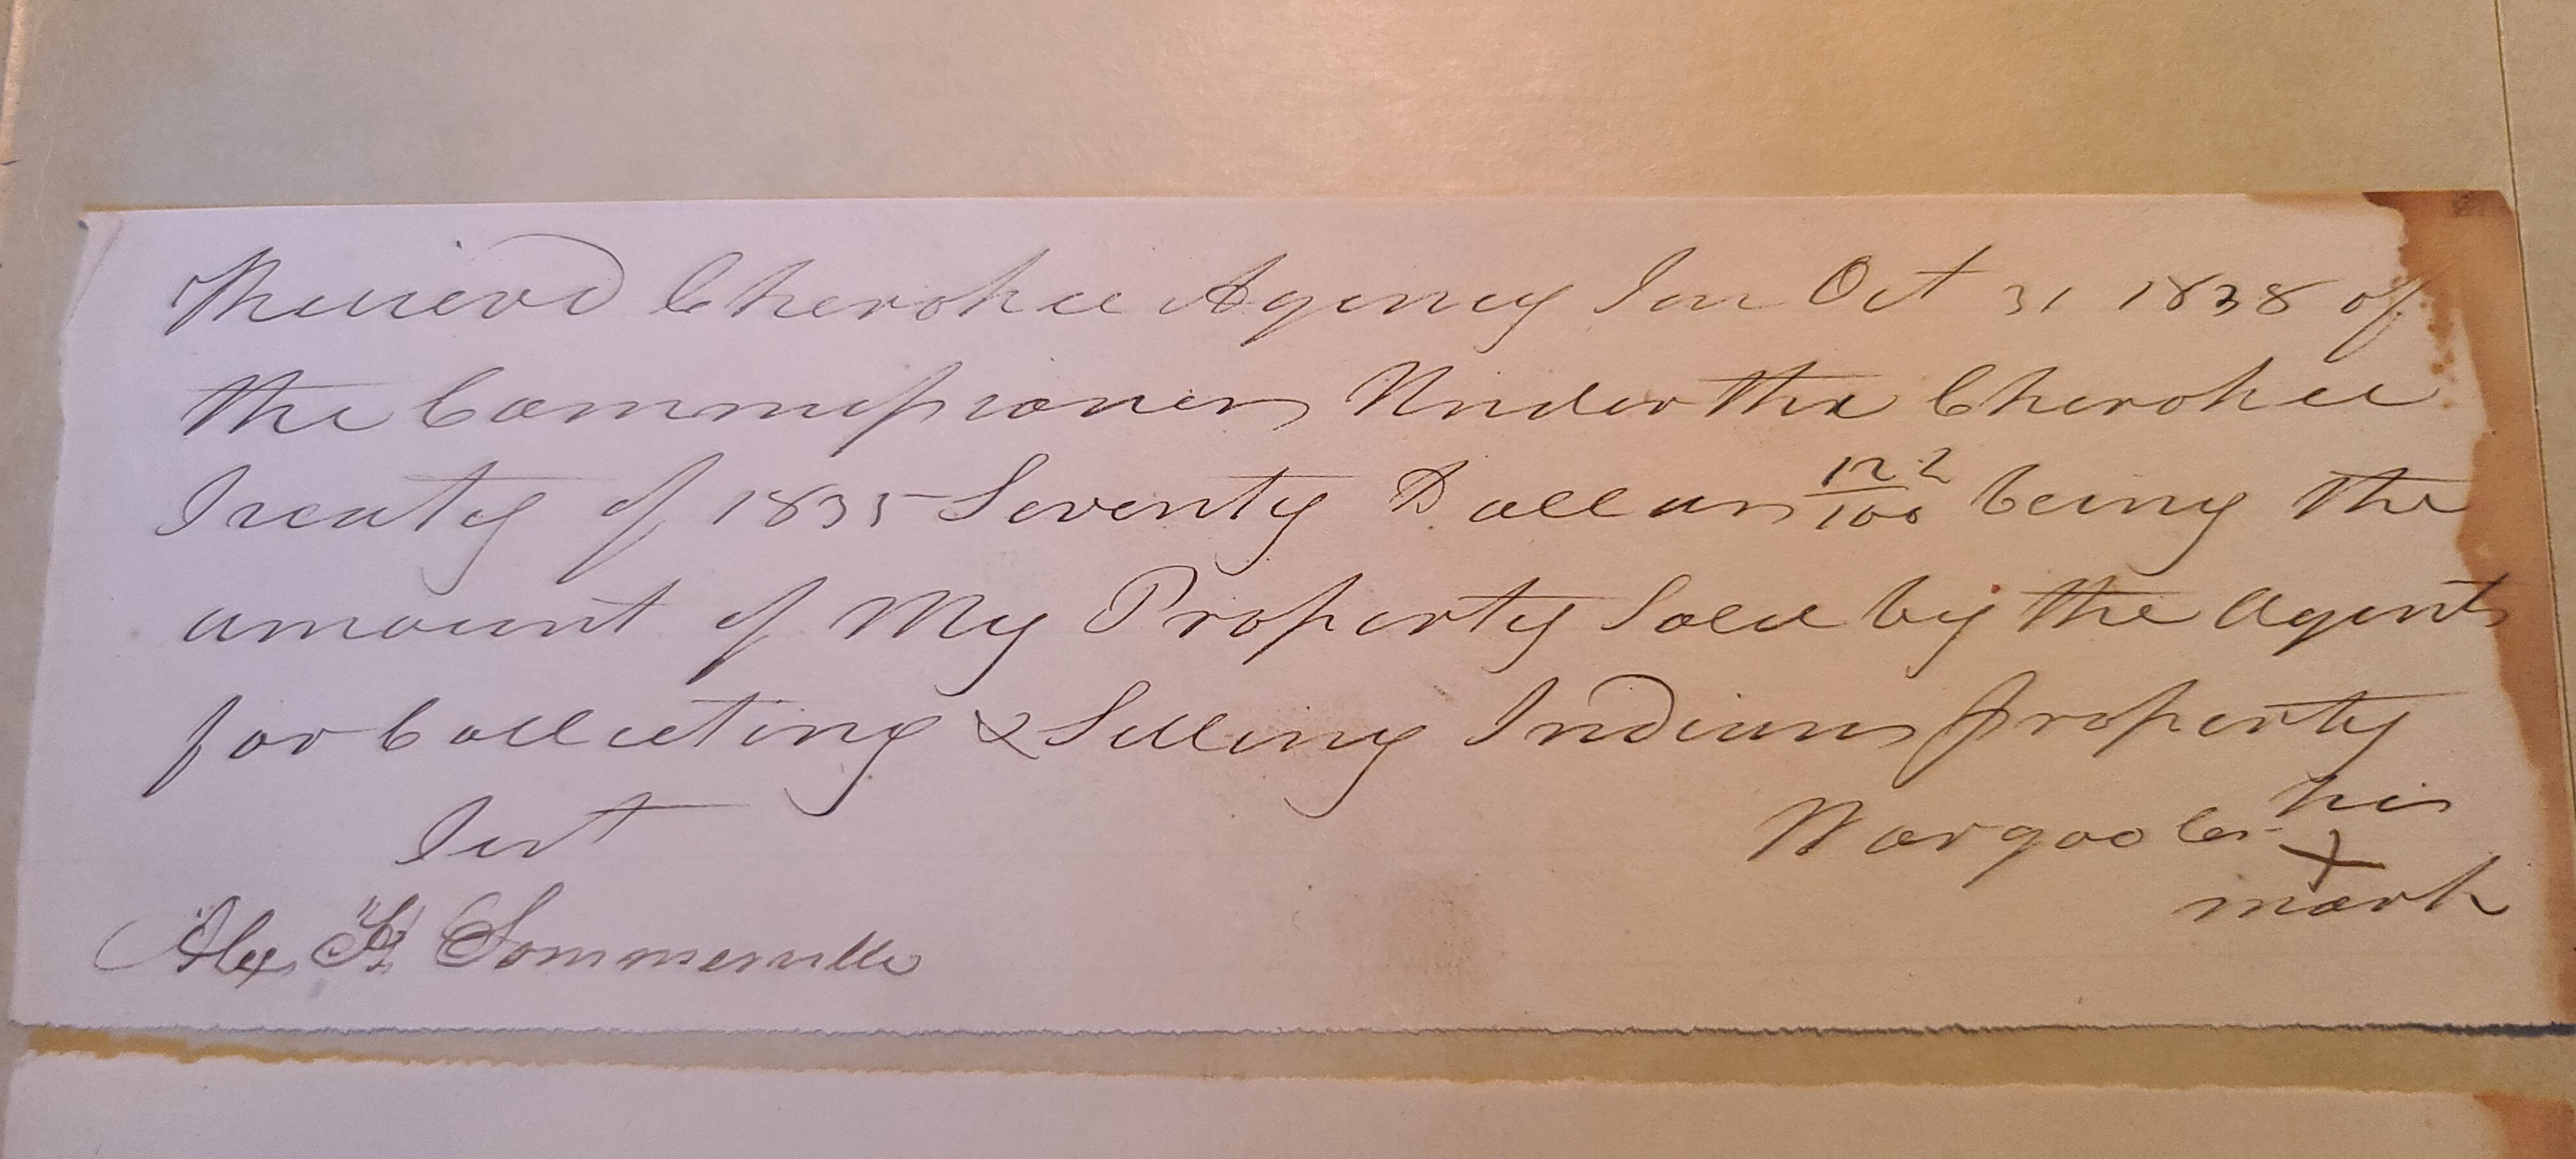 Received Cherokee Agency Ten Oct 31 1838 of
the Commissioners Under the Cherokee
Treaty of 1835 Seventy Dollars 12 2/100 being the
amount of My Property Sold by the Agents
for Collecting & Selling Indians property
Test his
X
mark
Alex H Sommerville